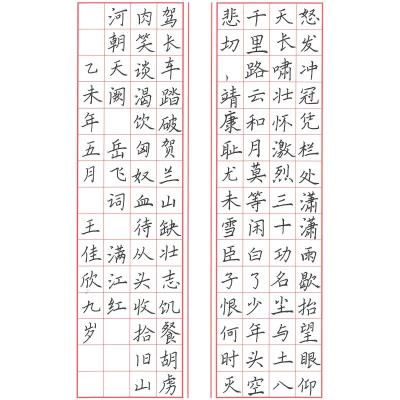 怒发冲冠凭栏处潇潇雨歇抬望眼仰
天长啸壮怀激烈三十功名尘与土八
千里路云和月莫等闲白了少年头空
悲切，靖康耻尤未雪臣子恨何时灭
驾长车踏破贺兰山缺壮志饥餐胡虏
肉笑谈渴饮匈奴血待从头收拾旧山
河朝天阙 岳飞词 满江红
乙未年五月 王佳欣九岁